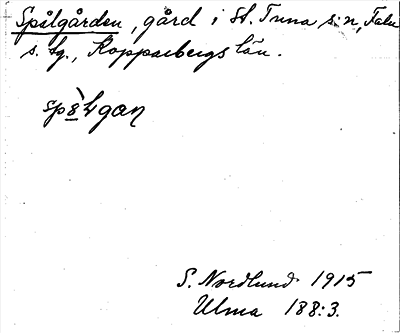 Spålgården, gård i St. Tuna s:n, Falu
s. lg., Kopparbergs län.
S. Nordlund 1915
Ulma 188:3.